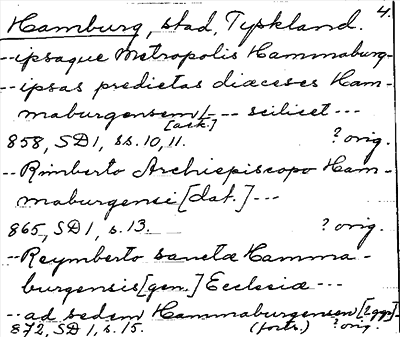 4.
Hamburg, stad, Tyskland.
--ipsaque Metropolis Hammaburg-
--ipsas predictas diœceses Ham-
maburgensem/--- scilicet---
[ack.]
858, SD 1, ss. 10, 11. ? orig.
--Rimberto Archiepiscopo Ham-
maburgensi [dat.] ---
865, SD 1, s. 13. ? orig.
--Reymberto sanctæ Hamma-
burgensis [gen.] Ecclesiæ ---
--ad sedem Hammaburgensem [2ggr]-
872, SD 1, s. 15. (forts.) ? orig.